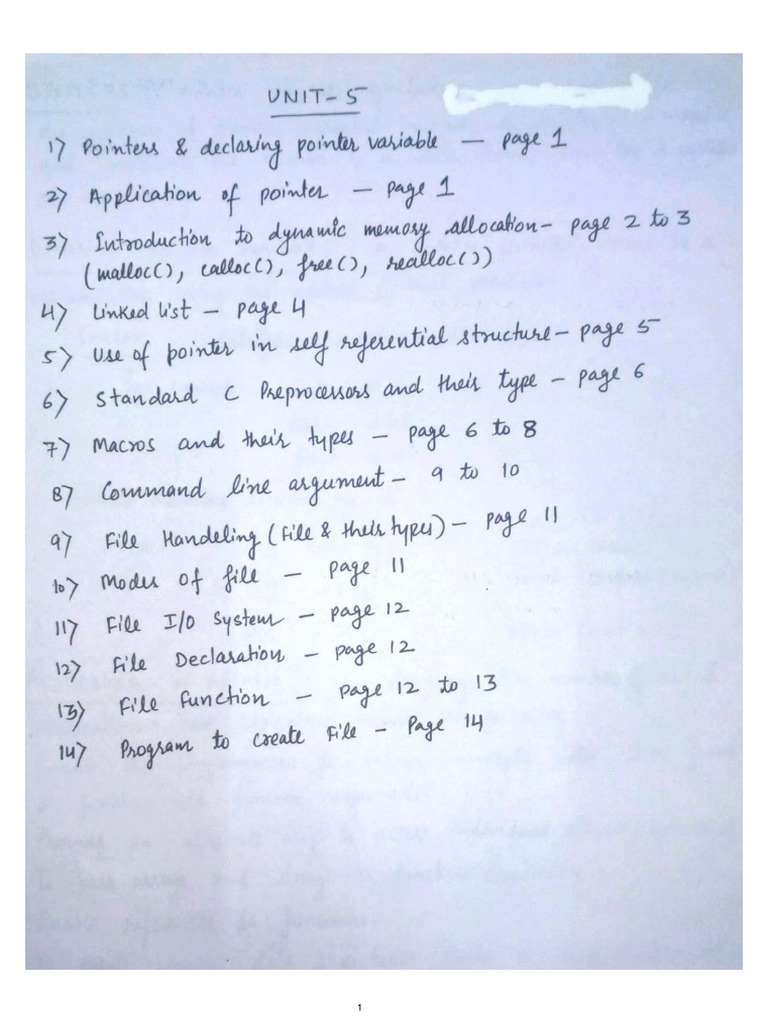 UNIT-5
1) Pointers & declaring pointer variable — page 1
2) Application of pointer — page 1
3) Introduction to dynamic memory allocation- page 2 to 3
(malloc(), calloc(), free(), realloc())
4) Linked list — page 4
5) Use of pointer in self referential structure- page 5
6) Standard C Preprocessors and their type — page 6
7) Macros and their types — page 6 to 8
8) Command line argument- 9 to 10
9) File Handeling (File & their types) — page 11
10) Modes of file — page 11
11) File I/O System — page 12
12) File Declaration — page 12
13) File Function — page 12 to 13
14) Program to create File - Page 14
1